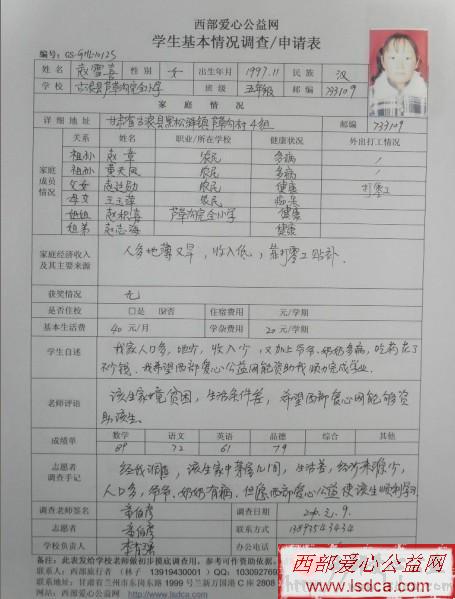 西部爱心公益网
学生基本情况调查/申请表
编号: GS-GHL-0125
姓名 赵雪喜 性别 女 出生年月 1997.11 民族 汉
学校 古浪县芦草沟完全小学 班级 五年级 邮编 733109
家庭情况
详细地址 甘肃省古浪县黑松驿镇芦草沟村4组 邮编 733109
关系 姓名 职业/所在学校 健康状况 外出打工情况
家庭成员情况
祖孙 赵章 农民 多病 /
祖孙 董天凤 农民 多病 /
父女 农民 健康 打零工
母女 王玉萍 农民
姐妹 赵积喜 芦草沟完全小学 健康
姐弟 赵志海 健康
家庭经济收入及其主要来源 人多地薄又旱,收入低,靠打零工贴补.
获奖情况 无
是否住校 □是 ☑否 住宿费用 元/学期
基本生活费 40 元/月 学杂费用 20 元/学期
学生自述 我家人口多,地少,收入少,又加上爷爷、奶奶多病,吃药花了
不少钱。我希望西部爱心公益网能资助我顺利完成学业.
老师评语 该生家境贫困,生活条件差,希望西部爱心网能够资
助该生.
成绩单 数学 语文 英语 品德 综合 其他
89 72 61 79
志愿者调查手记 经我调查,该生家中茅屋几间,生活苦,经济来源少,
人口多,爷爷、奶奶有病.但愿西部爱心公益使该生顺利学习
调查老师签名 调查日期
志愿者 联系方式 13893543434
学校负责人 办公电话
备注: 此表发给学校老师做初步摸底调查用,参考可作资助依据。
联系人: 西部旅行者 (林子 13919430001) QQ: 103092769
联系地址: 甘肃省兰州市东岗东路1999号兰新万国港C座2808
网站名: 西部爱心公益网 http://www.lsdca.com
西部爱心公益网
www.lsdca.com